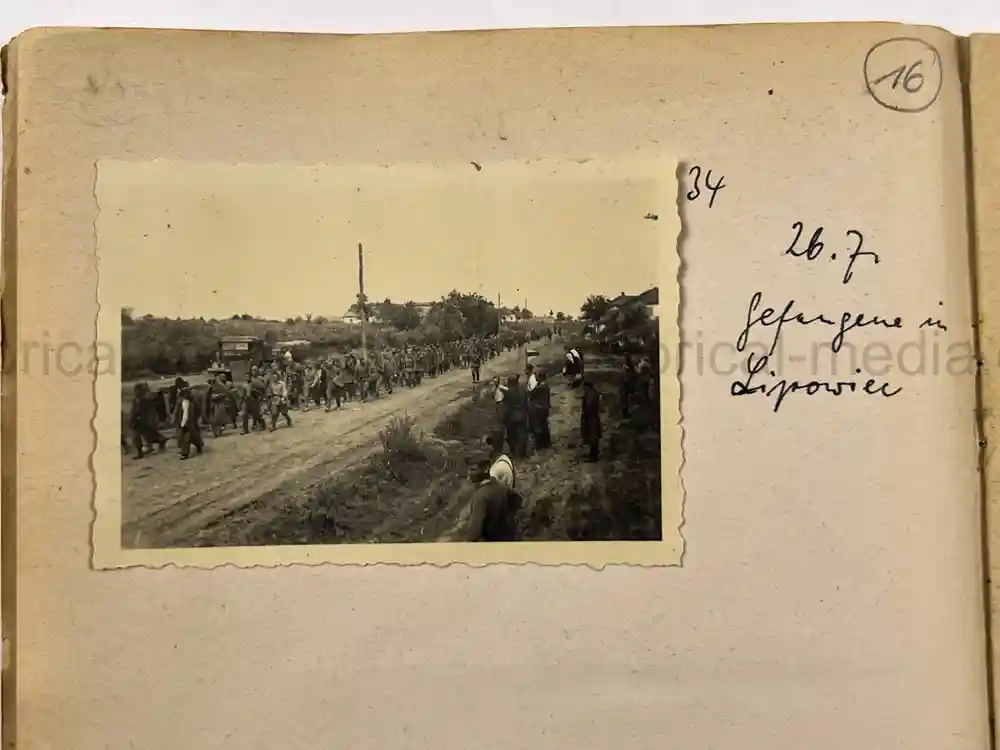 16
34
26.7.
Gefangene in
Lipowiec
rica
orical-media